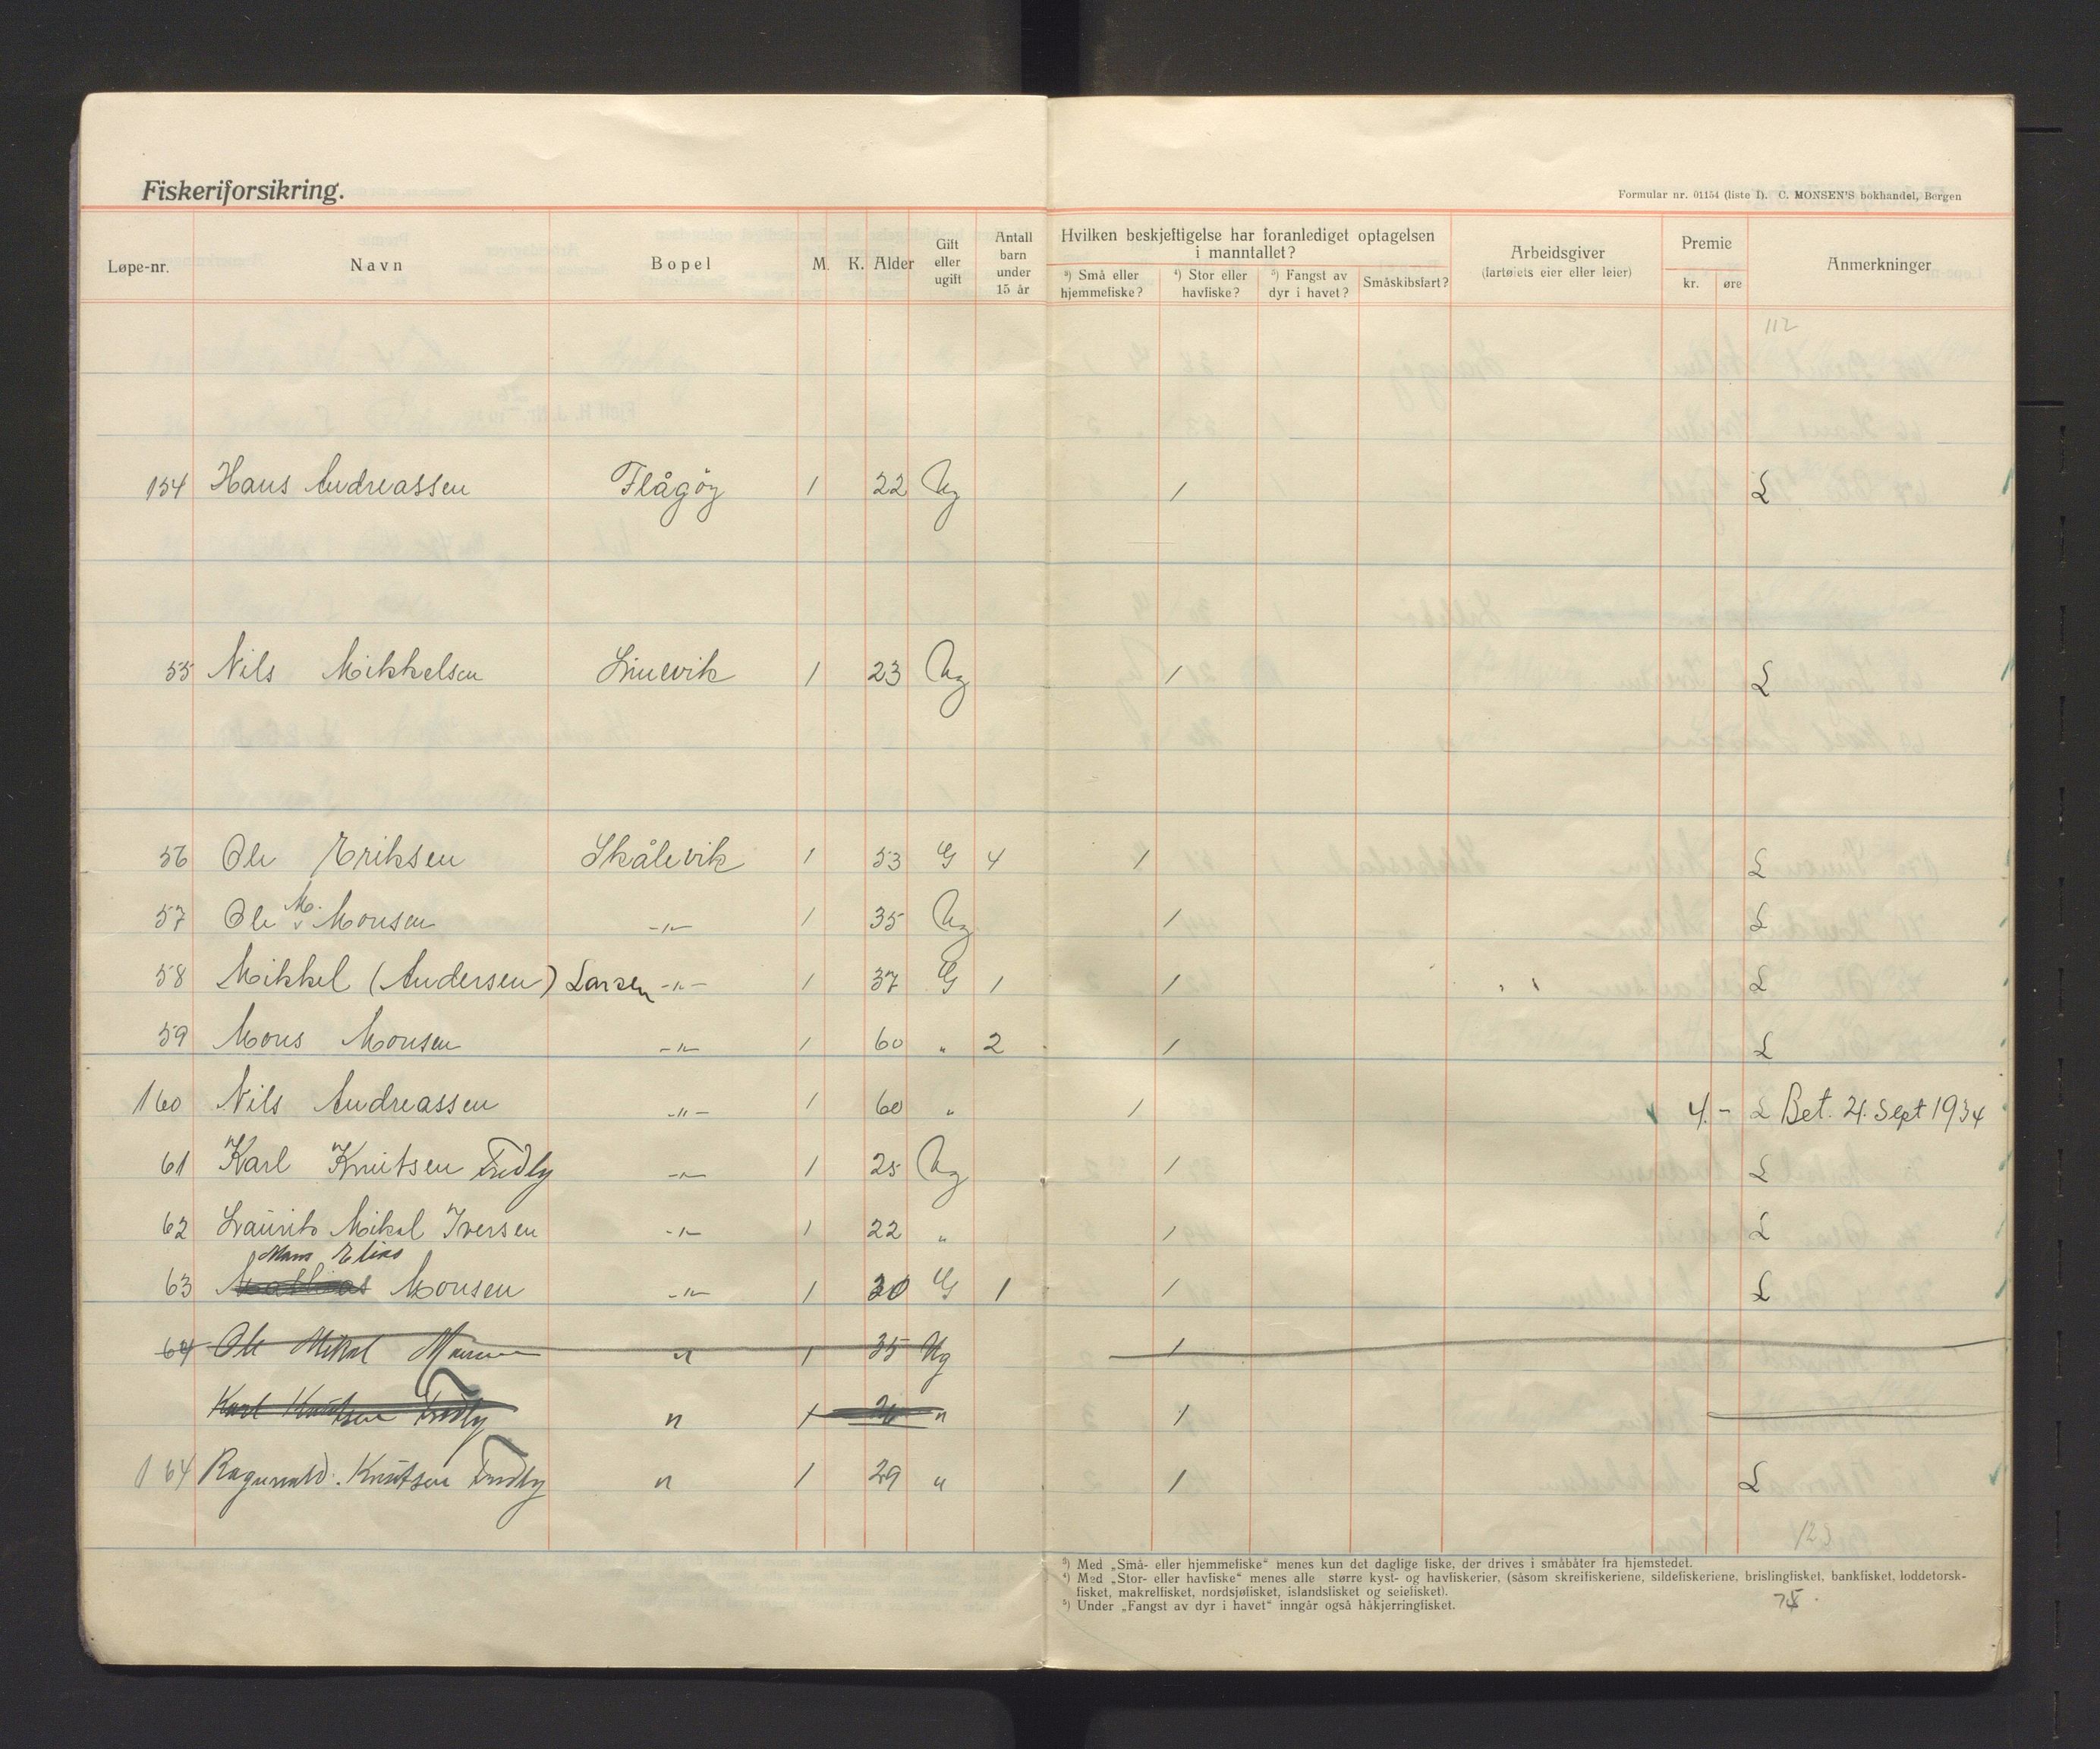 Fiskeriforsikring.
Formular nr. 01154 (liste 1). C. MONSEN'S bokhandel, Bergen
Løpe-nr. Navn Bopel M. K. Alder Gift eller ugift Antall barn under 15 år Hvilken beskjeftigelse har foranlediget optagelsen i manntallet? ³) Små eller hjemmefiske? ⁴) Stor eller havfiske? ⁵) Fangst av dyr i havet? Småskibsfart? Arbeidsgiver (fartøiets eier eller leier) Premie kr. øre Anmerkninger
112
154 Hans Andreassen Flågøy 1 22 Ug 1 L
55 Nils Mikkelsen Linevik 1 23 Ug 1 L
56 Ole Eriksen Skålevik 1 53 G 4 1 L
57 Ole M. Monsen -"- 1 35 Ug 1 L
58 Mikkel (Andersen) Larsen -"- 1 37 G 1 1 L
59 Mons Monsen -"- 1 60 " 2 1 L
160 Nils Andreassen -"- 1 60 " 1 4 - L Bet. 21. Sept 1934
61 Karl Knutsen Fredly -"- 1 25 Ug 1 L
62 Laurits Mikal Iversen -"- 1 22 " 1 L
Mons Elias
63 Monsen -"- 1 30 G 1 1 L
64 Ole Mikal Monsen " 1 35 Ug 1
Karl Knutsen Fredly " 1 26 " 1
164 Ragnvald Knutsen Fredly " 1 29 " 1 L
123
³) Med „Små- eller hjemmefiske“ menes kun det daglige fiske, der drives i småbåter fra hjemstedet.
⁴) Med „Stor- eller havfiske“ menes alle større kyst- og havfiskerier, (såsom skreifiskeriene, sildefiskeriene, brislingfisket, bankfisket, loddetorsk-
fisket, makrelfisket, nordsjøfisket, islandsfisket og seiefisket).
⁵) Under „Fangst av dyr i havet“ inngår også håkjerringfisket.